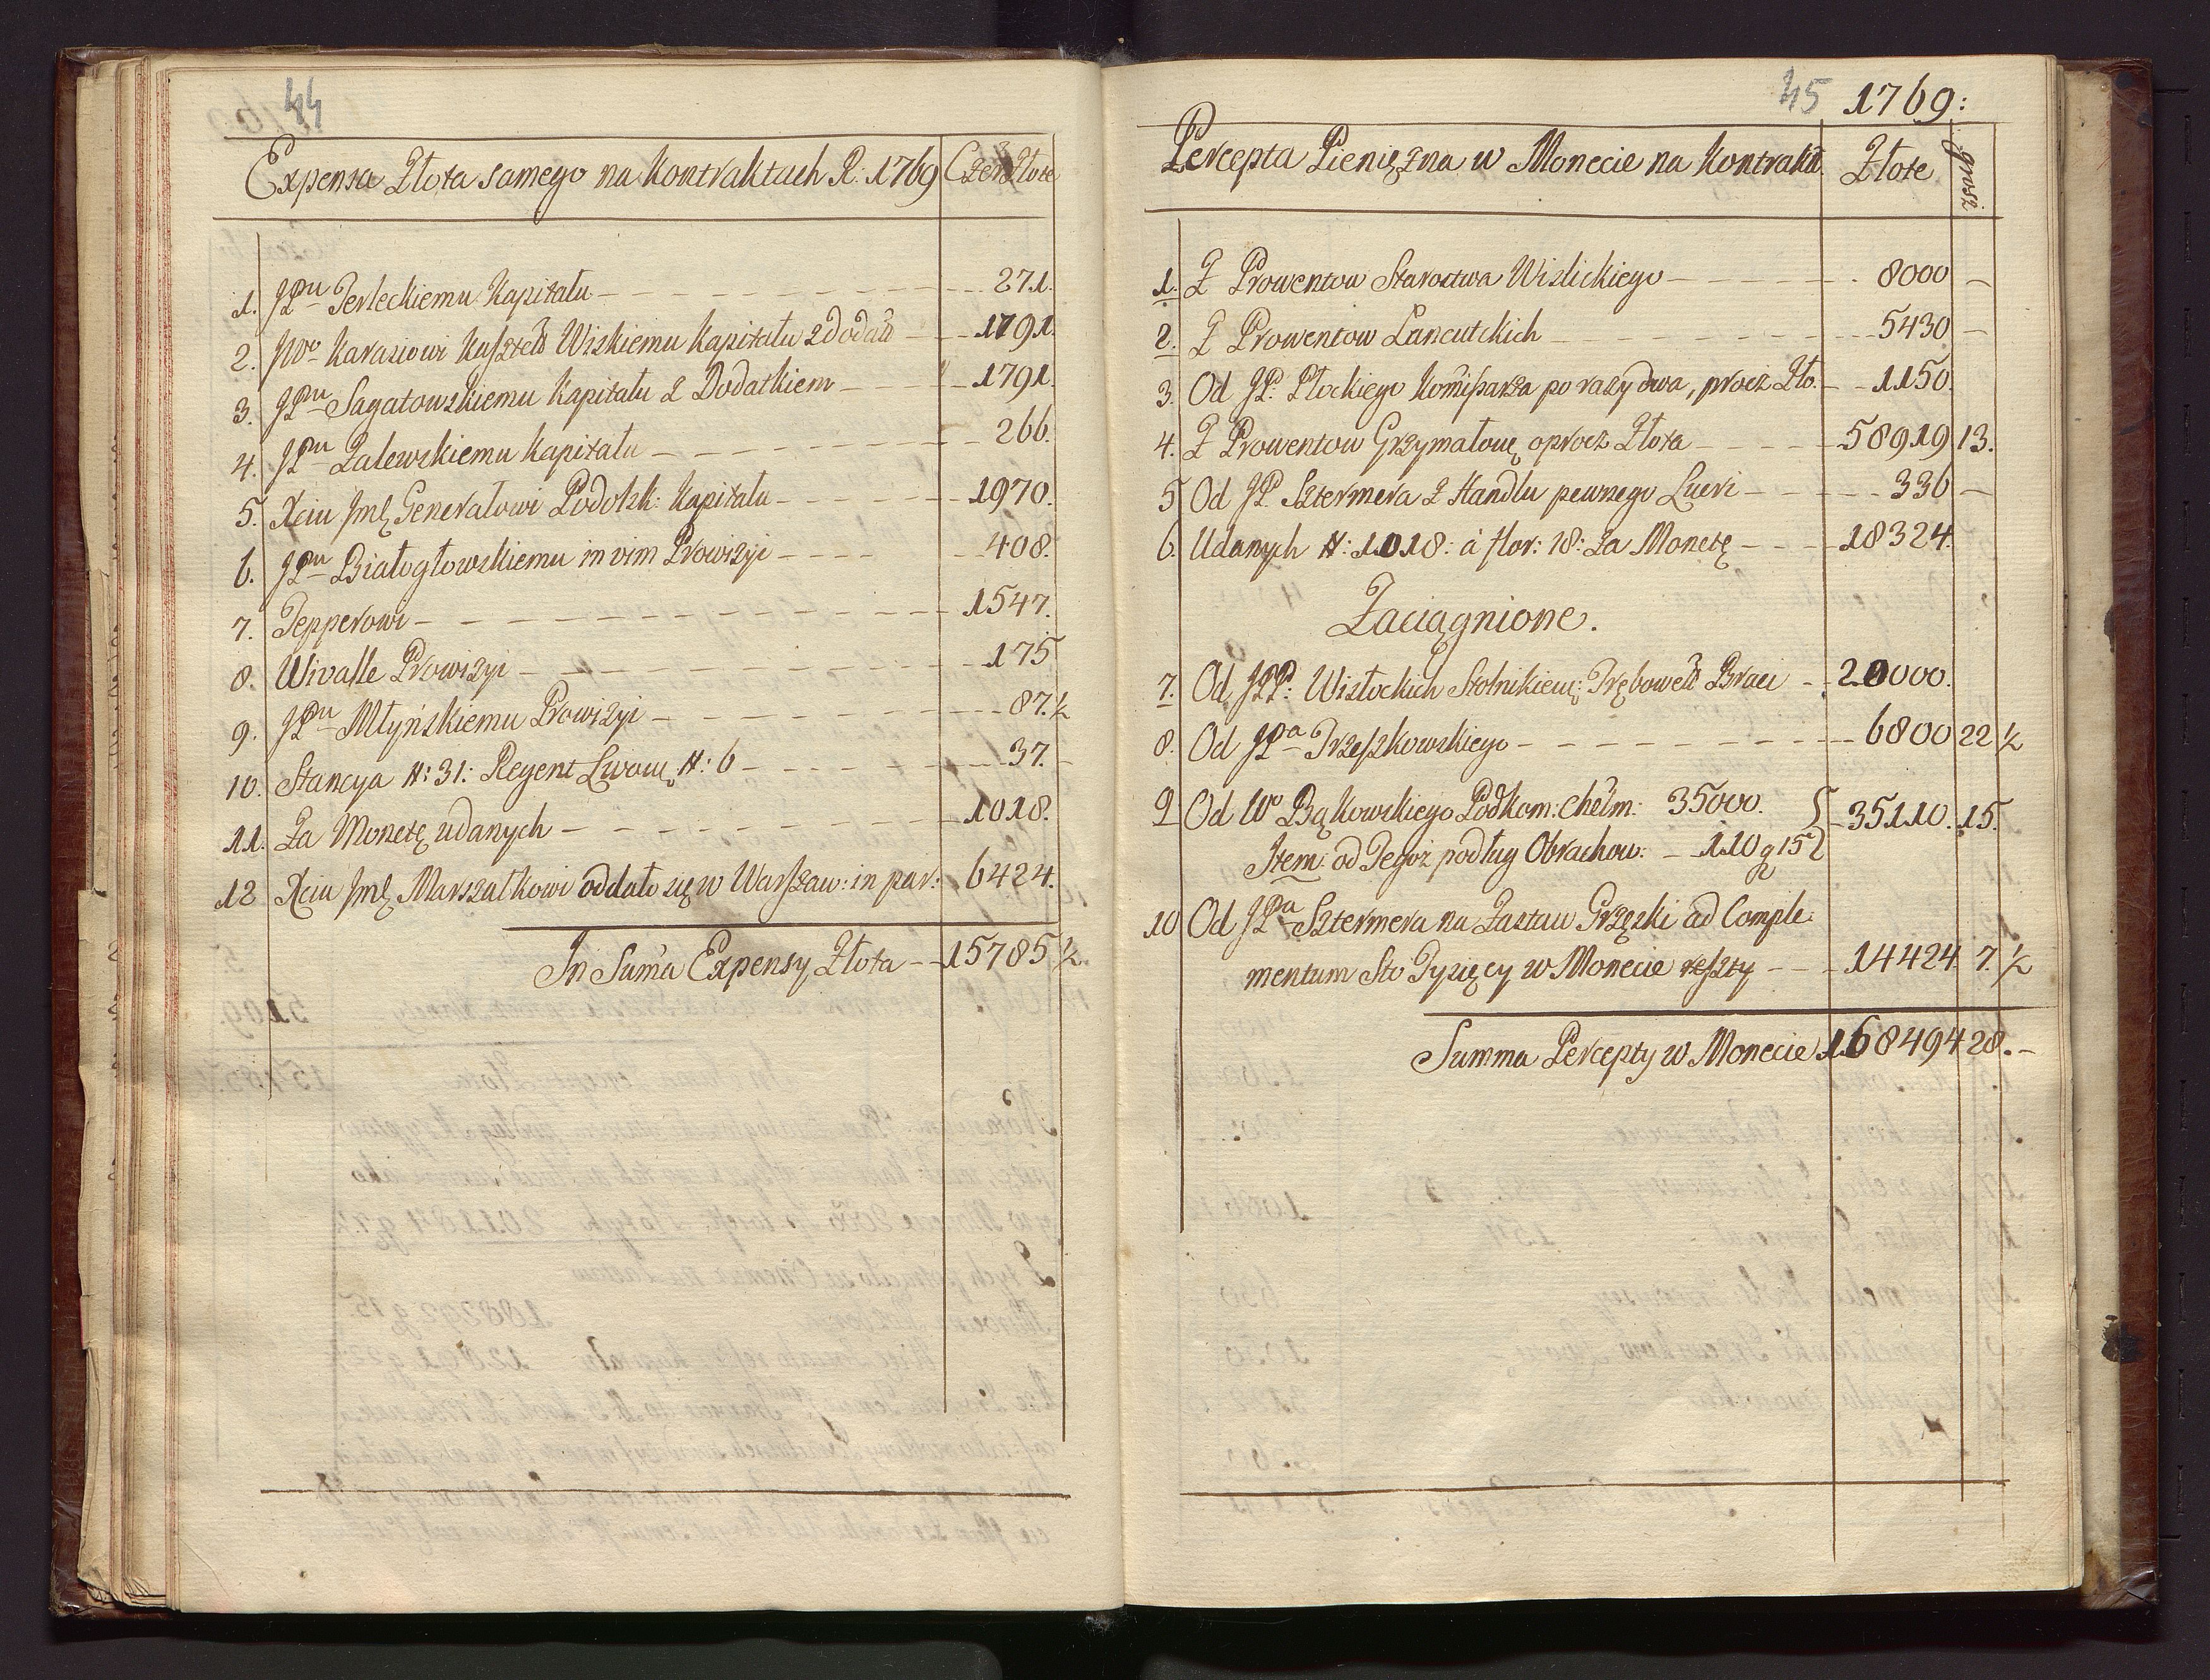 44
Expensa Złota samego na Kontraktach R: 1769 Czer: Złote
1. JPnu Terleckiemu Kapitału 271.
2. JWo Karasiowi Kasztel Wiskiemu Kapitału z Dodat 1791.
3. JPnu Sagatowskiemu Kapitału z Dodatkiem 1791.
4. JPnu Zalewskiemu Kapitału 266.
5. Xciu Jmę Generałowi Podolsk: Kapitału 1970.
6. JPnu Białogłowskiemu in vim Prowizyi 408.
7. Tepperowi 1547.
8. Wivalle Prowizyi 175
9. JPnu Młyńskiemu Prowizyi 87.½
10. Stancya #: 31: Regent Lwow #: 6 37.
11. Za Monetę udanych 1018.
12 Xciu Jmę Marszałkowi oddało się w Warszaw: in par: 6424.
In Suma Expensy Złota 15785 ½
45 1769:
Percepta Pieniężna w Monecie na Kontrakt. Złote grosz
1. Z Prowentow Starostwa Wislickiego 8000 –
2. Z Prowentow Lancutskich 5430 –
3. Od JP. Płockiego Komisarza po razy dwa, procz Zło. 1150.
4. Z Prowentow Grzymałow oprocz Złota 58919 13.
5 Od JP. Sztermera z Handlu pewnego Lucri 336 –
6. Udanych #: 1018: á flor: 18: za Monetę 18324.
Zaciągnione.
7. Od JPP: Wisłockich Stolnikiew: Trębowel Braci 20000.
8. Od JPa Trzeszkowskiego 6800 22 ½
9 Od Wo Bąkowskiego Podkom: Chełm: 35000. 35110. 15.
Item od Tegoż podług Obrachow: 110 g 15
10 Od JPa Sztermera na Zastaw Grzęski ad Comple:
mentum Sto Tysięcy w Monecie reszty 14424 7. ½
Summa Percepty w Monecie 168494 28. –